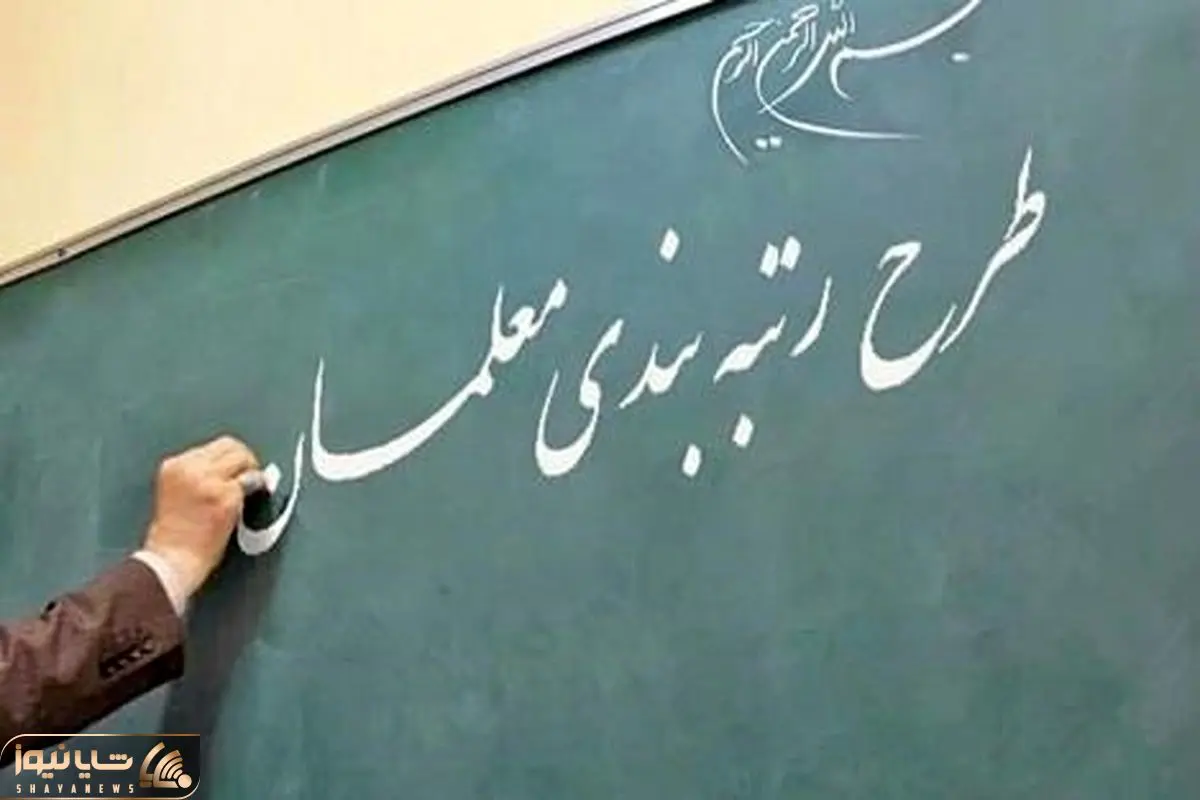 بسم الله الرحمن الرحیم
طرح رتبه بندی معلمان
شایانیوز
SHAYANEWS